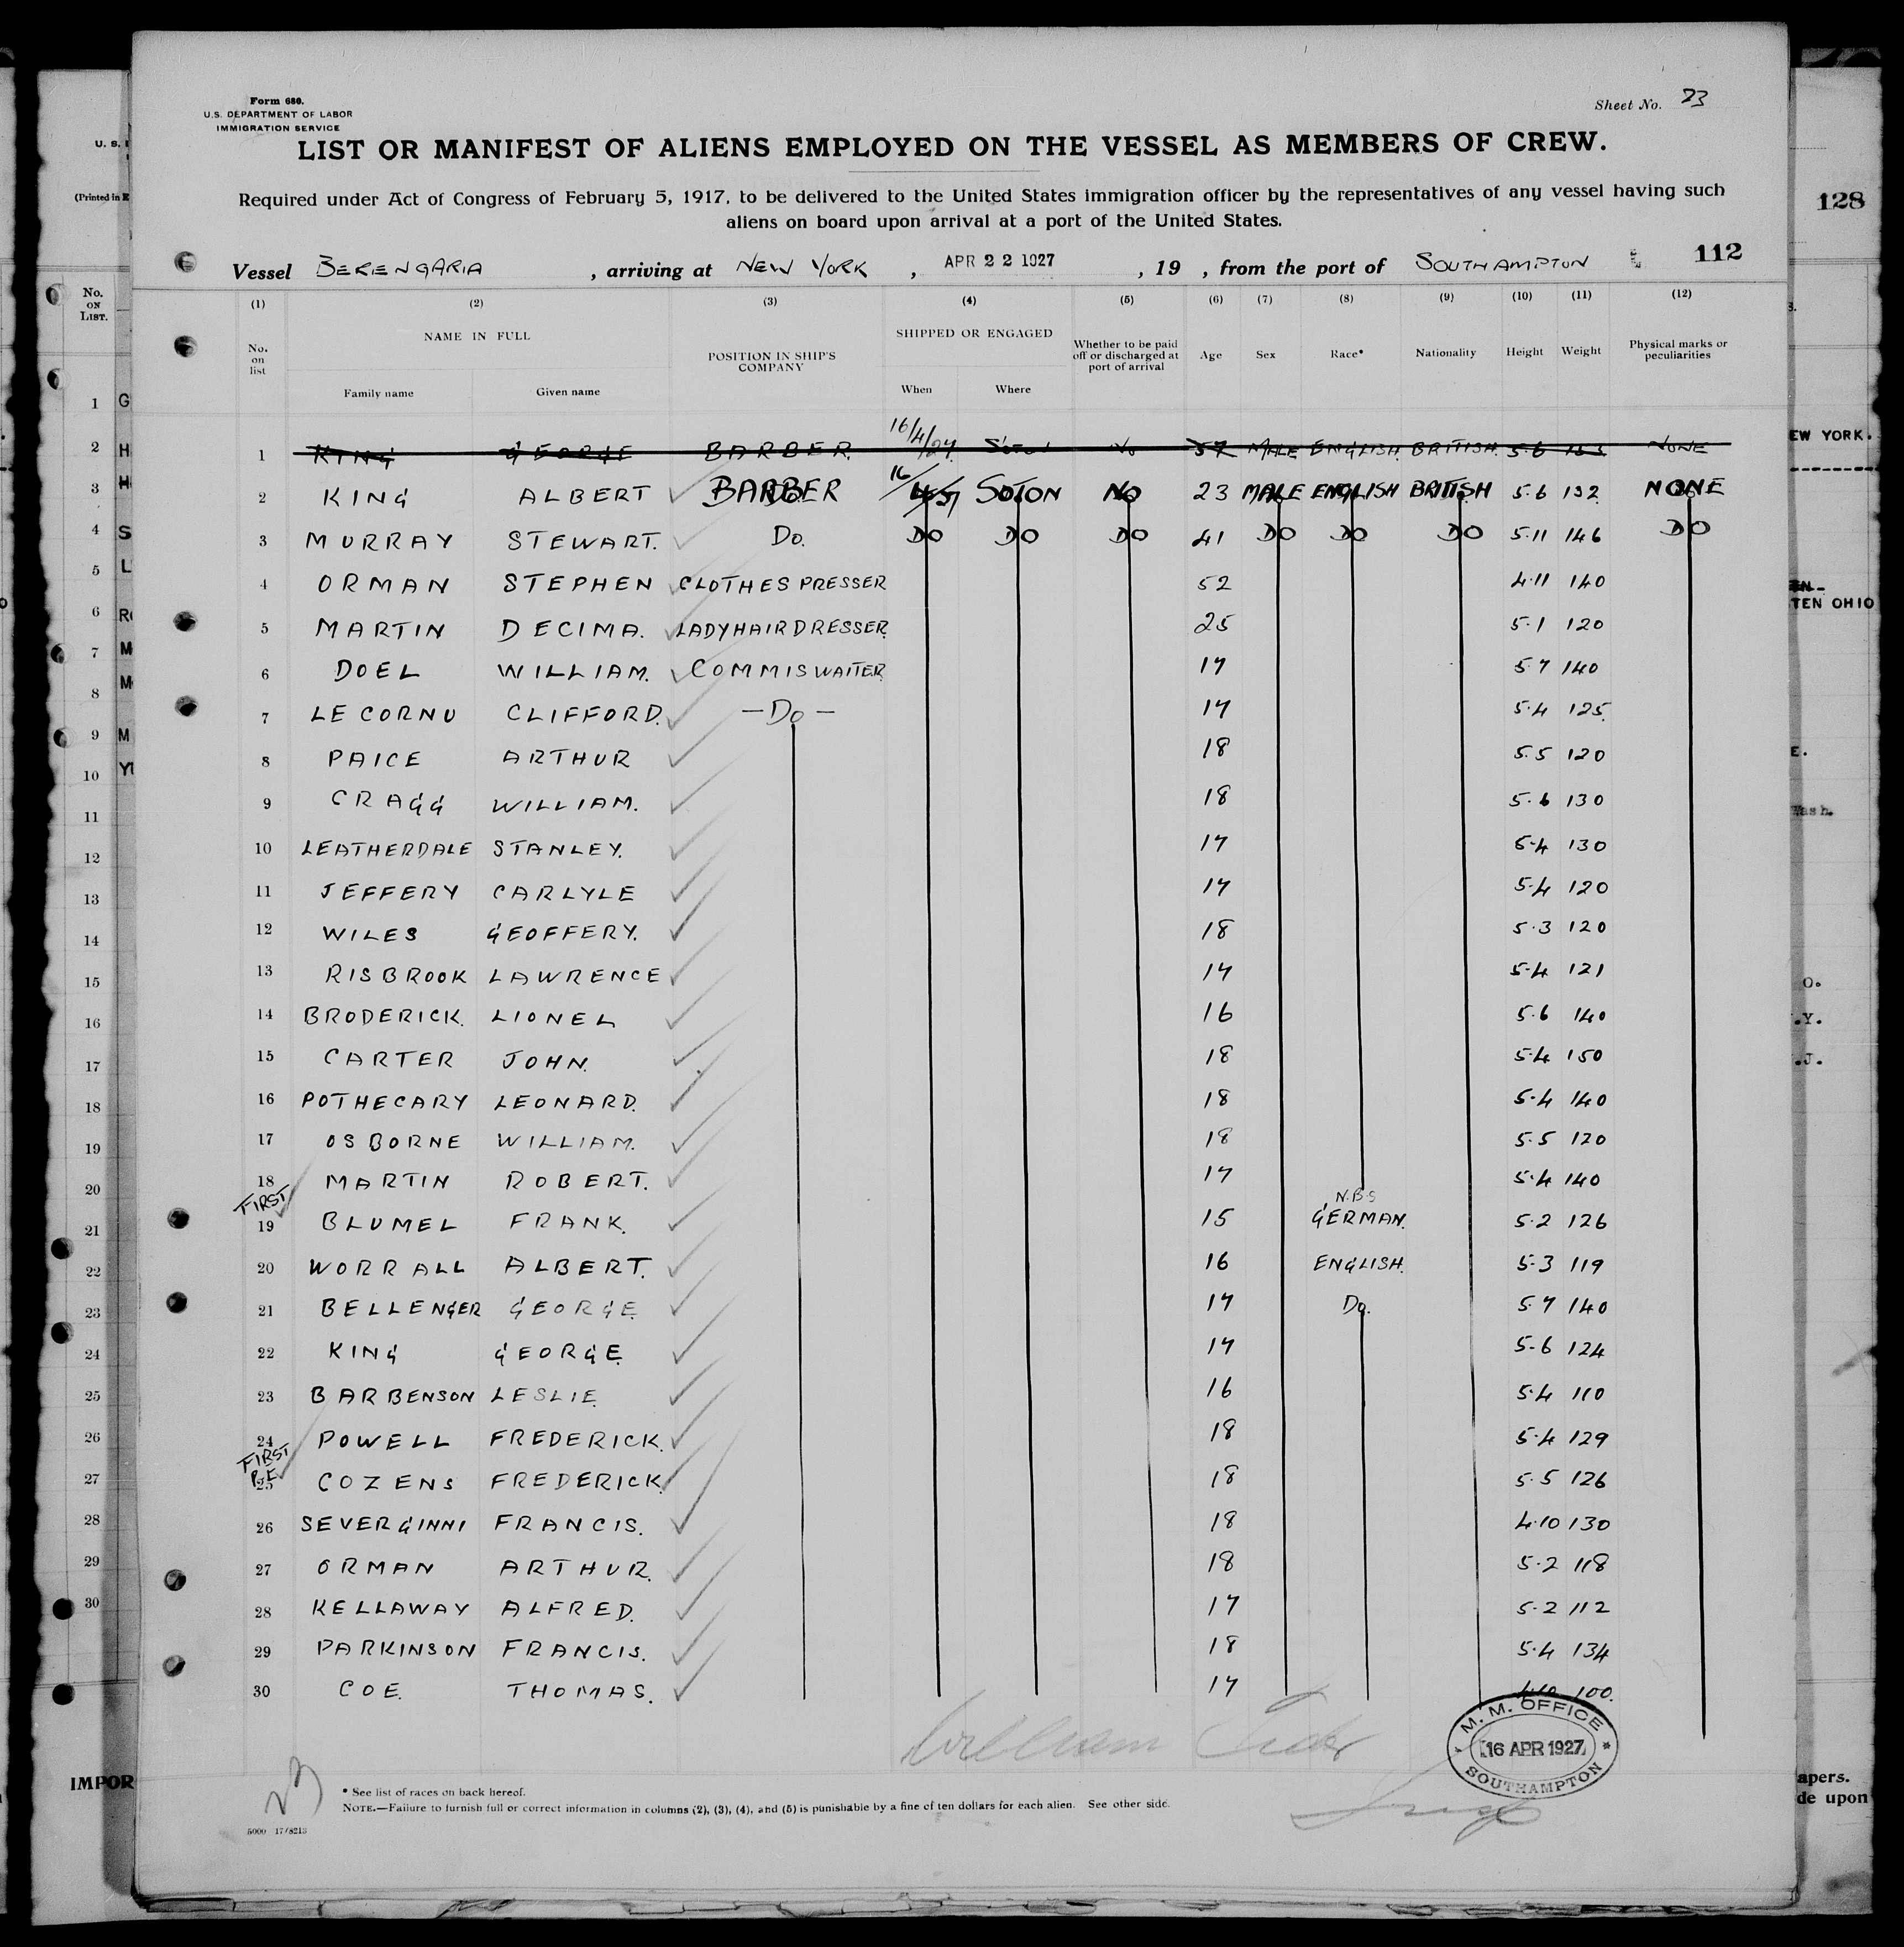 Form 680.
U.S. DEPARTMENT OF LABOR
IMMIGRATION SERVICE
Sheet No. 23
LIST OR MANIFEST OF ALIENS EMPLOYED ON THE VESSEL AS MEMBERS OF CREW.
Required under Act of Congress of February 5, 1917, to be delivered to the United States immigration officer by the representatives of any vessel having such
aliens on board upon arrival at a port of the United States.
112
Vessel BERENGARIA, arriving at NEW YORK, APR 22 1927, 19 , from the port of SOUTHAMPTON
(1) (2) (3) (4) (5) (6) (7) (8) (9) (10) (11) (12)
No. on list NAME IN FULL Family name Given name POSITION IN SHIP'S COMPANY SHIPPED OR ENGAGED When Where Whether to be paid off or discharged at port of arrival Age Sex Race* Nationality Height Weight Physical marks or peculiarities
1 KING GEORGE BARBER 16/4/27 SOTON NO 57 MALE ENGLISH. BRITISH. 5.6 NONE
2 KING ALBERT BARBER 16/4/27 SOTON NO 23 MALE ENGLISH BRITISH 5.6 132 NONE
3 MURRAY STEWART. DO. DO DO DO 41 DO DO DO 5.11 146 DO
4 ORMAN STEPHEN CLOTHES PRESSER 52 4.11 140
5 MARTIN DECIMA. LADYHAIRDRESSER. 25 5.1 120
6 DOEL WILLIAM. COMMIS WAITER. 17 5.7 140
7 LE CORNU CLIFFORD. —DO— 17 5.4 125.
8 PAICE ARTHUR 18 5.5 120
9 CRAGG WILLIAM. 18 5.6 130
10 LEATHERDALE STANLEY. 17 5.4 130
11 JEFFERY CARLYLE 17 5.4 120
12 WILES GEOFFERY. 18 5.3 120
13 RISBROOK LAWRENCE 17 5.4 121
14 BRODERICK. LIONEL 16 5.6 140
15 CARTER JOHN. 18 5.4 150
16 POTHECARY LEONARD. 18 5.4 140
17 OSBORNE WILLIAM. 18 5.5 120
18 MARTIN ROBERT. 17 5.4 140
FIRST N.B.S
19 BLUMEL FRANK. 15 GERMAN. 5.2 126
20 WORRALL ALBERT. 16 ENGLISH. 5.3 119
21 BELLENGER GEORGE. 17 DO. 5.7 140
22 KING GEORGE. 17 5.6 124
23 BARBENSON LESLIE. 16 5.4 110
24 POWELL FREDERICK. 18 5.4 129
FIRST
25 COZENS FREDERICK. 18 5.5 126
26 SEVERGINNI FRANCIS. 18 4.10 130
27 ORMAN ARTHUR. 18 5.2 118
28 KELLAWAY ALFRED. 17 5.2 112
29 PARKINSON FRANCIS. 18 5.4 134
30 COE. THOMAS. 17 4.10 100.
William
M. M. OFFICE
16 APR 1927
SOUTHAMPTON
23
* See list of races on back hereof.
NOTE.—Failure to furnish full or correct information in columns (2), (3), (4), and (5) is punishable by a fine of ten dollars for each alien. See other side.
5000 17/8213
U. S.
(Printed in
No.
ON
LIST.
1 G
2 H
3 H
4 S
5 L
6 R
7 M
8 M
9 M
10 Y
11
12
13
14
15
16
17
18
19
20
21
22
23
24
25
26
27
28
29
30
IMPOR
128
EW YORK.
TEN OHIO
E.
Wash.
O.
.Y.
.J.
apers.
de upon